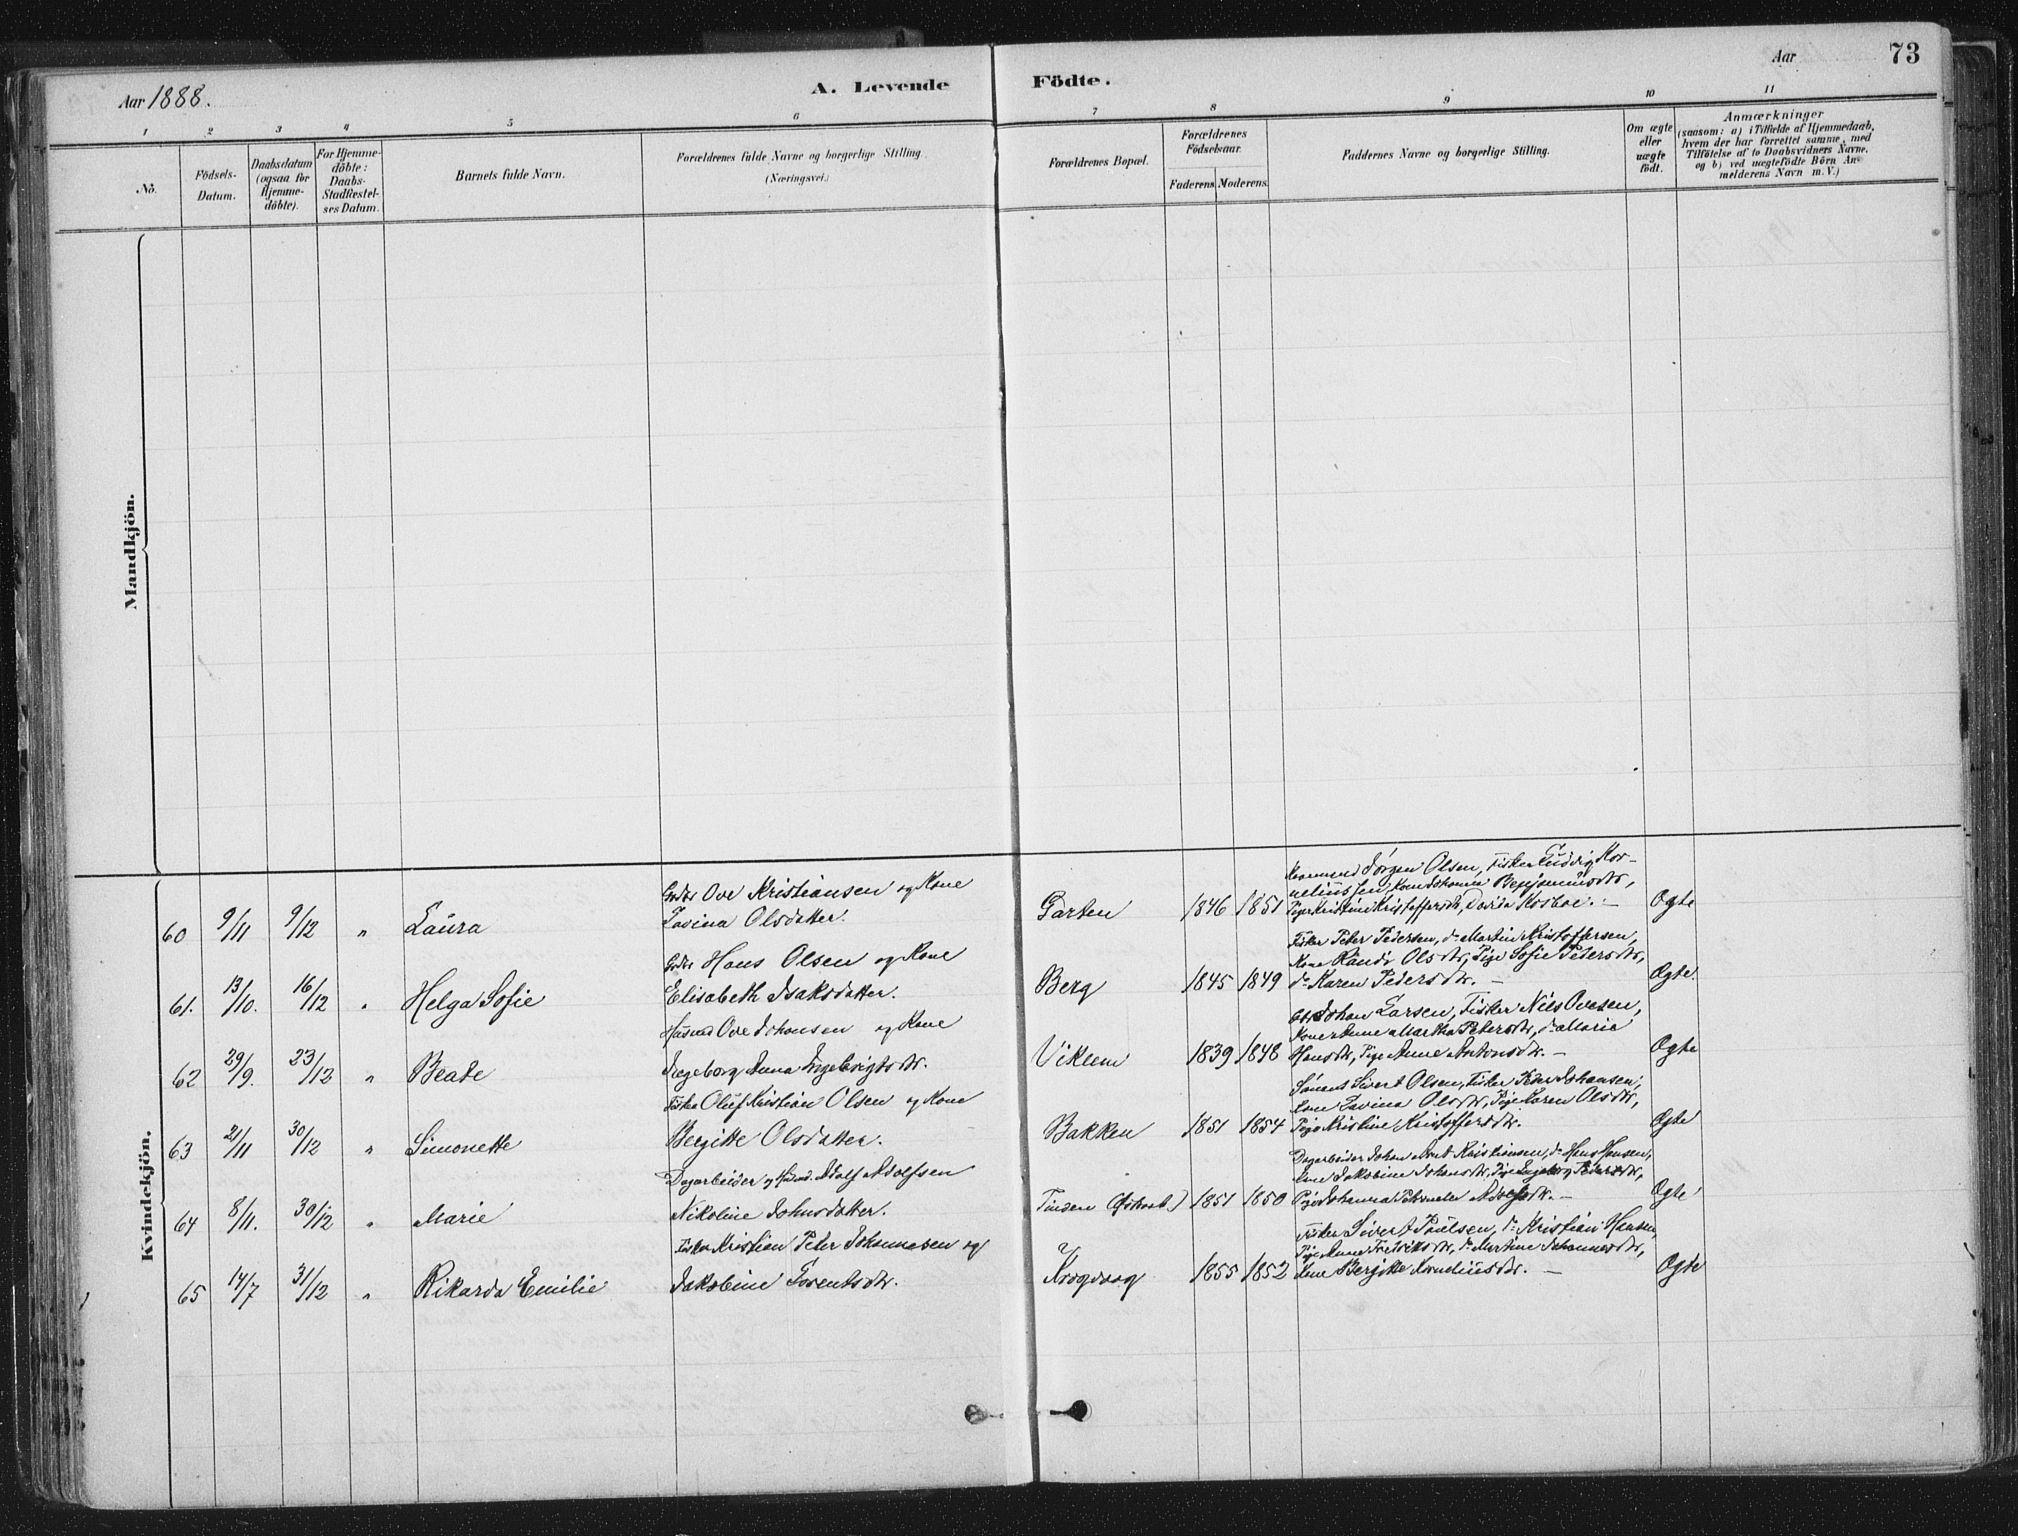 Aar 1888.
A. Levende Födte.
Aar
73
1 2 3 4 5 6 7 8 9 10 11
No.
Födsels-Datum.
Daabsdatum (ogsaa for Hjemme-döbte).
For Hjemme-döbte: Daabs-Stadfæstel-ses Datum.
Barnets fulde Navn.
Forældrenes fulde Navne og borgerlige Stilling.
(Næringsvei.)
Forældrenes Bopæl.
Forældrenes Födselsaar.
Faderens Moderens
Faddernes Navne og borgerlige Stilling.
Om ægte eller uægte födt.
Anmærkninger
(saasom: a) i Tilfælde af Hjemmedaab, hvem der har forrettet samme, med Tilföielse af to Daabsvidners Navne, og b) ved uægtefödte Börn An-melderens Navn m.V.)
Mandkjön.
Kvindekjön.
60 9/11 9/12 " Laura
Ove Kristiansen og Kone
Lavina Olsdatter.
Garten 1846 1851
Jörgen Olsen, Fisker Ludvig Kor-
neliussen, Kone Johanna Benjaminsdtr,
Pige Kristine Kristoffersdtr, .–
Ægte
61. 13/10. 16/12 " Helga Sofie
Hans Olsen og Kone
Elisabeth Isaksdatter.
Berg 1845 1849
Fisker Peter Pedersen, do Martin Kristoffersen,
Kone Olsdtr, Pige Sofie Petersdtr,
do Karen Pedersdtr. –
Ægte
62 29/9. 23/12 " Beate
Husmd Ove Johansen og Kone
Ingeborg Anna Ingebrigtsdtr.
Viklem 1839 1848
Johan Larsen, Fisker Nils Ovesen,
Kone Anne Martha Petersdtr, do Maria
Hansdtr, Pige Anne Antonsdtr. –
Ægte
63 21/11 30/12 " Simonette
Fisker Oluf Kristian Olsen og Kone
Bergitte Olsdatter.
Bakken 1851 1854
Sivert Olsen, Fisker Peder Johansen,
Kone Lavina Olsdtr, Pige Karen Olsdtr,
Pige Kristine Kristoffersdtr.
Ægte
64 8/11. 30/12 " Marie
Dagarbeider og Husmd. Adolf Adolfsen
Nikoline Johnsdatter.
1851 1850
Dagarbeider Johan Arnt Kristiansen, do Hans Hansen,
Kone Jakobine Johansdtr, Pige Ingeborg Pedersdtr,
Pige Johanna Adolfsdtr. –
Ægte
65 14/7 31/12 " Rikarda Emilie
Fisker Kristian Peter Johannesen og
Jakobine Lorentsdtr.
Krogvaag 1855 1852
Fisker Sivert Paulsen, do Kristian Hansen,
Pige Anne Fredriksdtr, do Martine Johannesdtr,
Kone Bergitte Korneliusdtr. –
Ægte